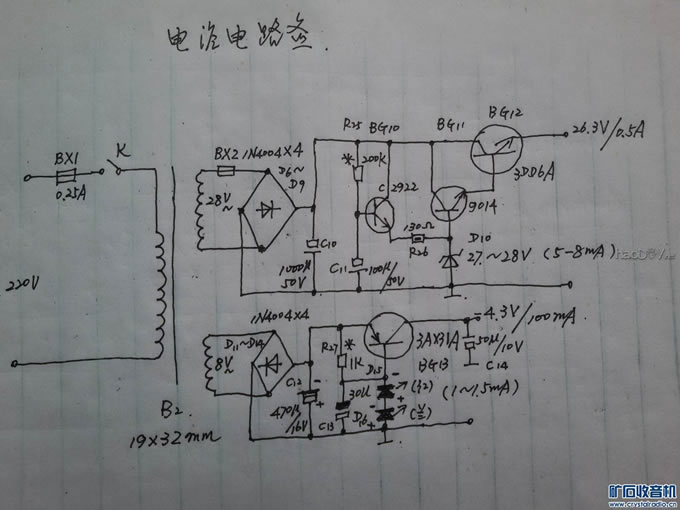 电流电路盒.
BX1
K
0.25A
220V
B2
19×32mm
BX2 1N4004×4
28V~
D6~
D9
C10
1000μ
50V
R25
* 200K
BG10
C 2922
C11
100μ/50V
130Ω
R26
BG11
9014
BG12
3DD6A
26.3V/0.5A
D10
27~28V (5-8mA)
1N4004×4
D11~D14
8V~
C12
470μ/16V
R27
* 1K
30μ
C13
D15
D16
3AX31A
BG13
-4.3V/100mA
50μ/10V
C14
(1~1.5mA)
矿石收音机
www.crystalradio.cn